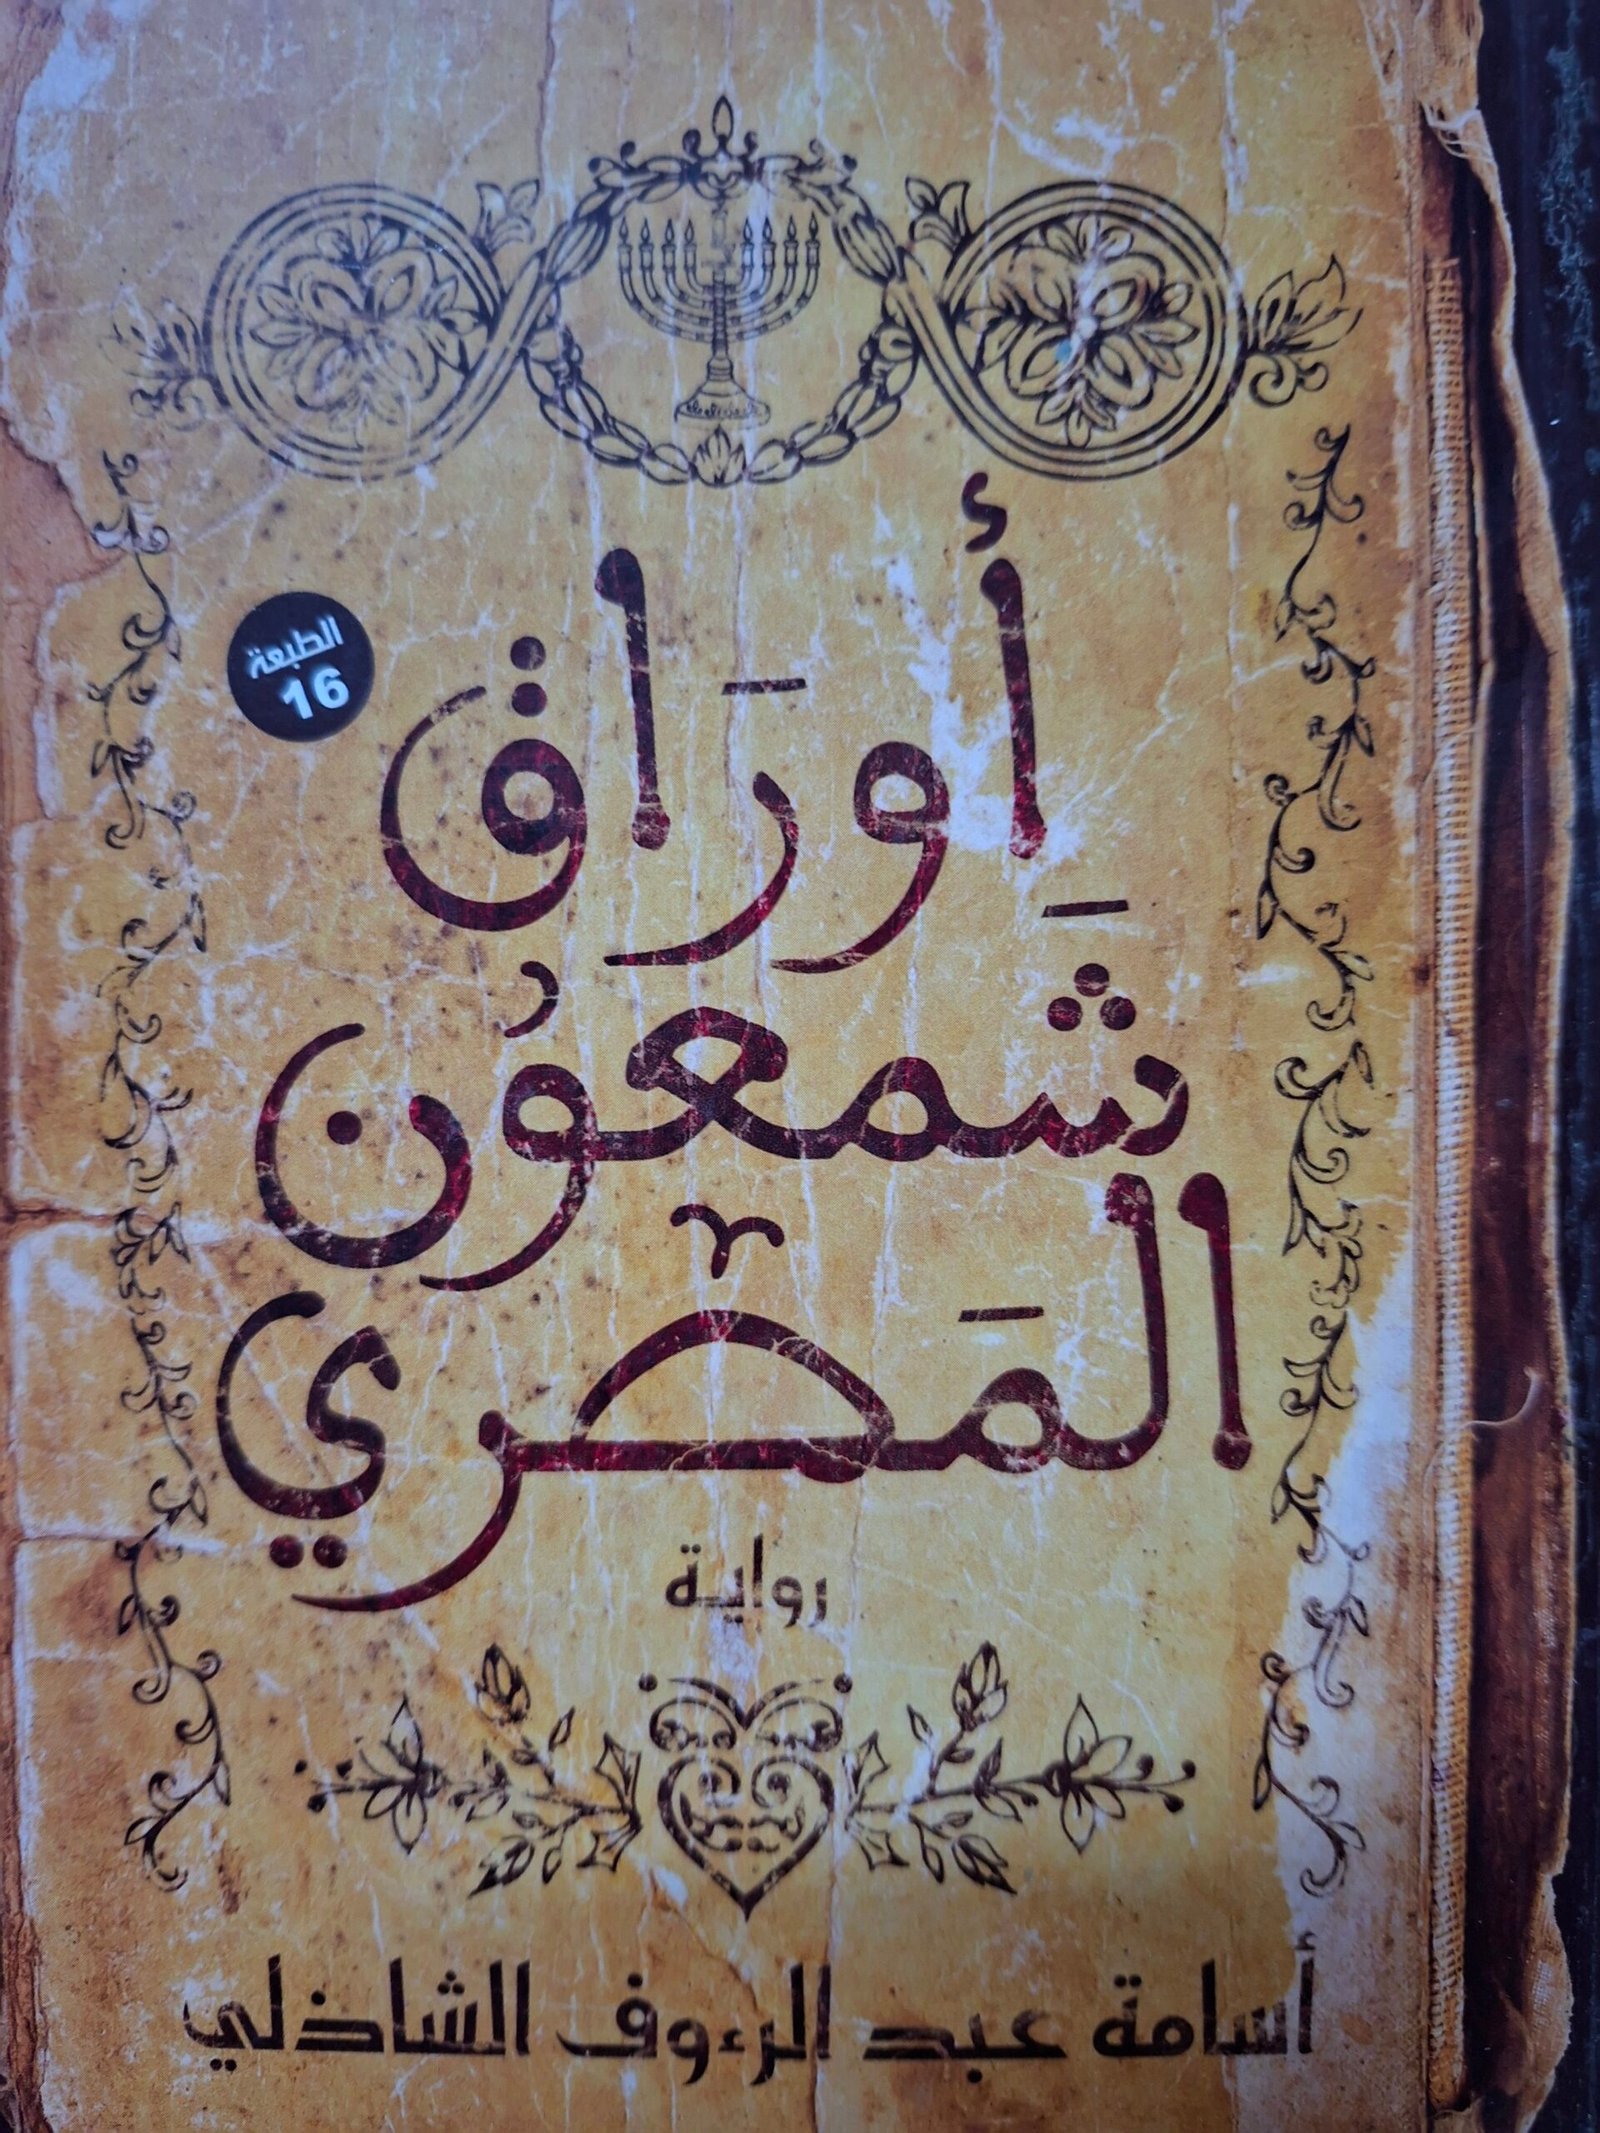 الطبعة
16
أورَاق
شَمعوُن
المَصري
رواية
أسامة عبد الرءوف الشاذلي